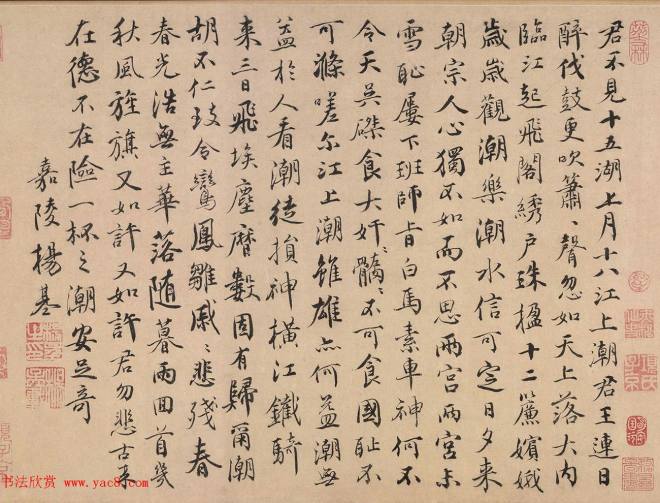 君不見十五湖七月十八江上潮君王連日
醉伐鼓更吹簫〻聲忽如天上落大内
臨江起飛閣綉户珠楹十二簾嬪娥
歲歲觀潮樂潮水信可定日夕来
朝宗人心獨不如而不思兩宮兩宮尔
雪恥屢下班師旨白馬素車神何不
令天吳磔食大奸〻髒〻不可食國恥不
可滌嗟尔江上潮雖雄亦何益潮無
益於人看潮徒損神橫江鐵騎
来三日飛埃塵曆數固有歸甯潮
胡不仁致令鸞鳳雛戚〻悲殘春
春光浩無主華落随暮雨回首幾
秋風旌旗又如許又如許君勿悲古来
在德不在險一杯之潮安足奇
嘉陵楊基
书法欣赏 www.yac8.com